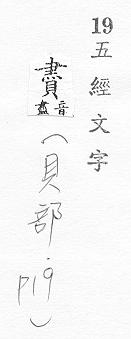 19 五經文字
賮 音盡
（貝部 p19）